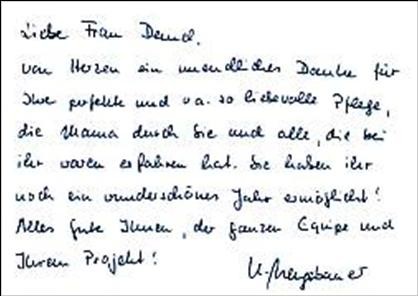 Liebe Frau Demel,
von Herzen ein unendliches Danke für
Ihre perfekte und v.a. so liebevolle Pflege,
die Mama durch Sie und alle, die bei
ihr waren erfahren hat. Sie haben ihr
noch ein wunderschönes Jahr ermöglicht!
Alles Gute Ihnen, der ganzen Equipe und
Ihrem Projekt!